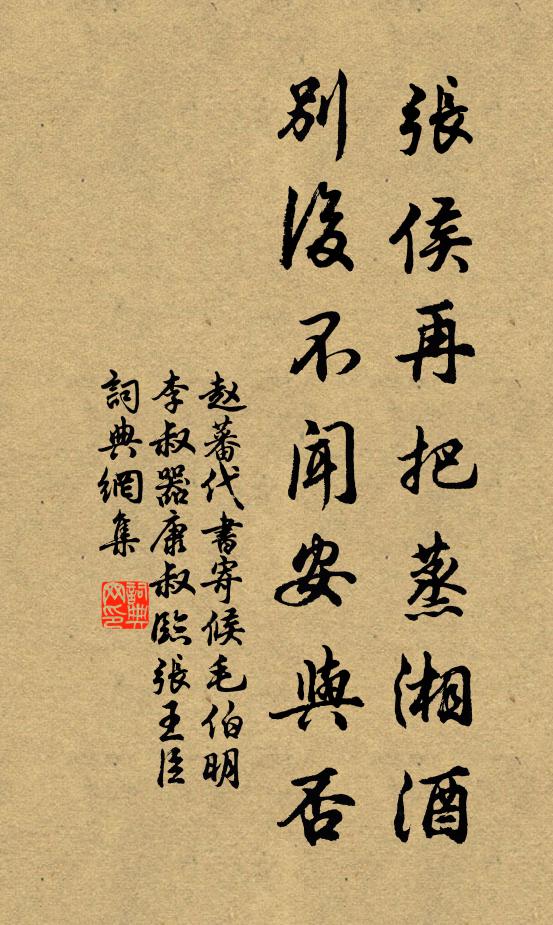 張侯再把蒸湘酒
別後不聞安與否
赵蕃代書寄候毛伯明
李叔器康叔臨張王臣
詞典網集
詞典
网印